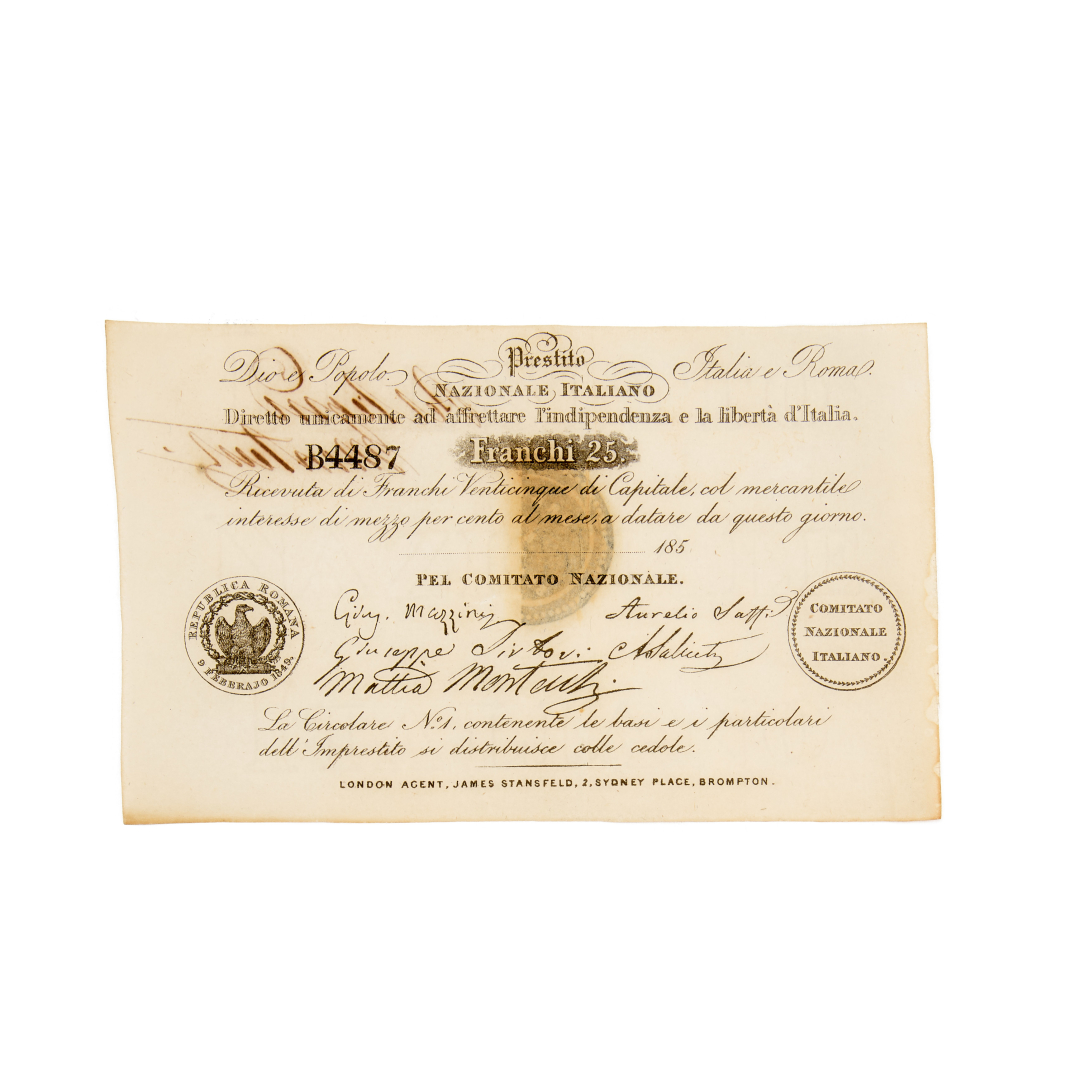 Dio e Popolo.
Prestito
Italia e Roma.
NAZIONALE ITALIANO
Diretto unicamente ad affrettare l'indipendenza e la libertà d'Italia.
B4487
Franchi 25.
Ricevuta di Franchi Venticinque di Capitale, col mercantile
interesse di mezzo per cento al mese, a datare da questo giorno.
185
PEL COMITATO NAZIONALE.
REPUBLICA ROMANA
9 FEBBRAJO 1849.
Gius. Mazzini
Aurelio Saffi
Giuseppe Sirtori. ASaliceti
Mattia Montecchi.
COMITATO
NAZIONALE
ITALIANO.
La Circolare No. 1. contenente le basi e i particolari
dell'Imprestito si distribuisce colle cedole.
LONDON AGENT, JAMES STANSFELD, 2, SYDNEY PLACE, BROMPTON.